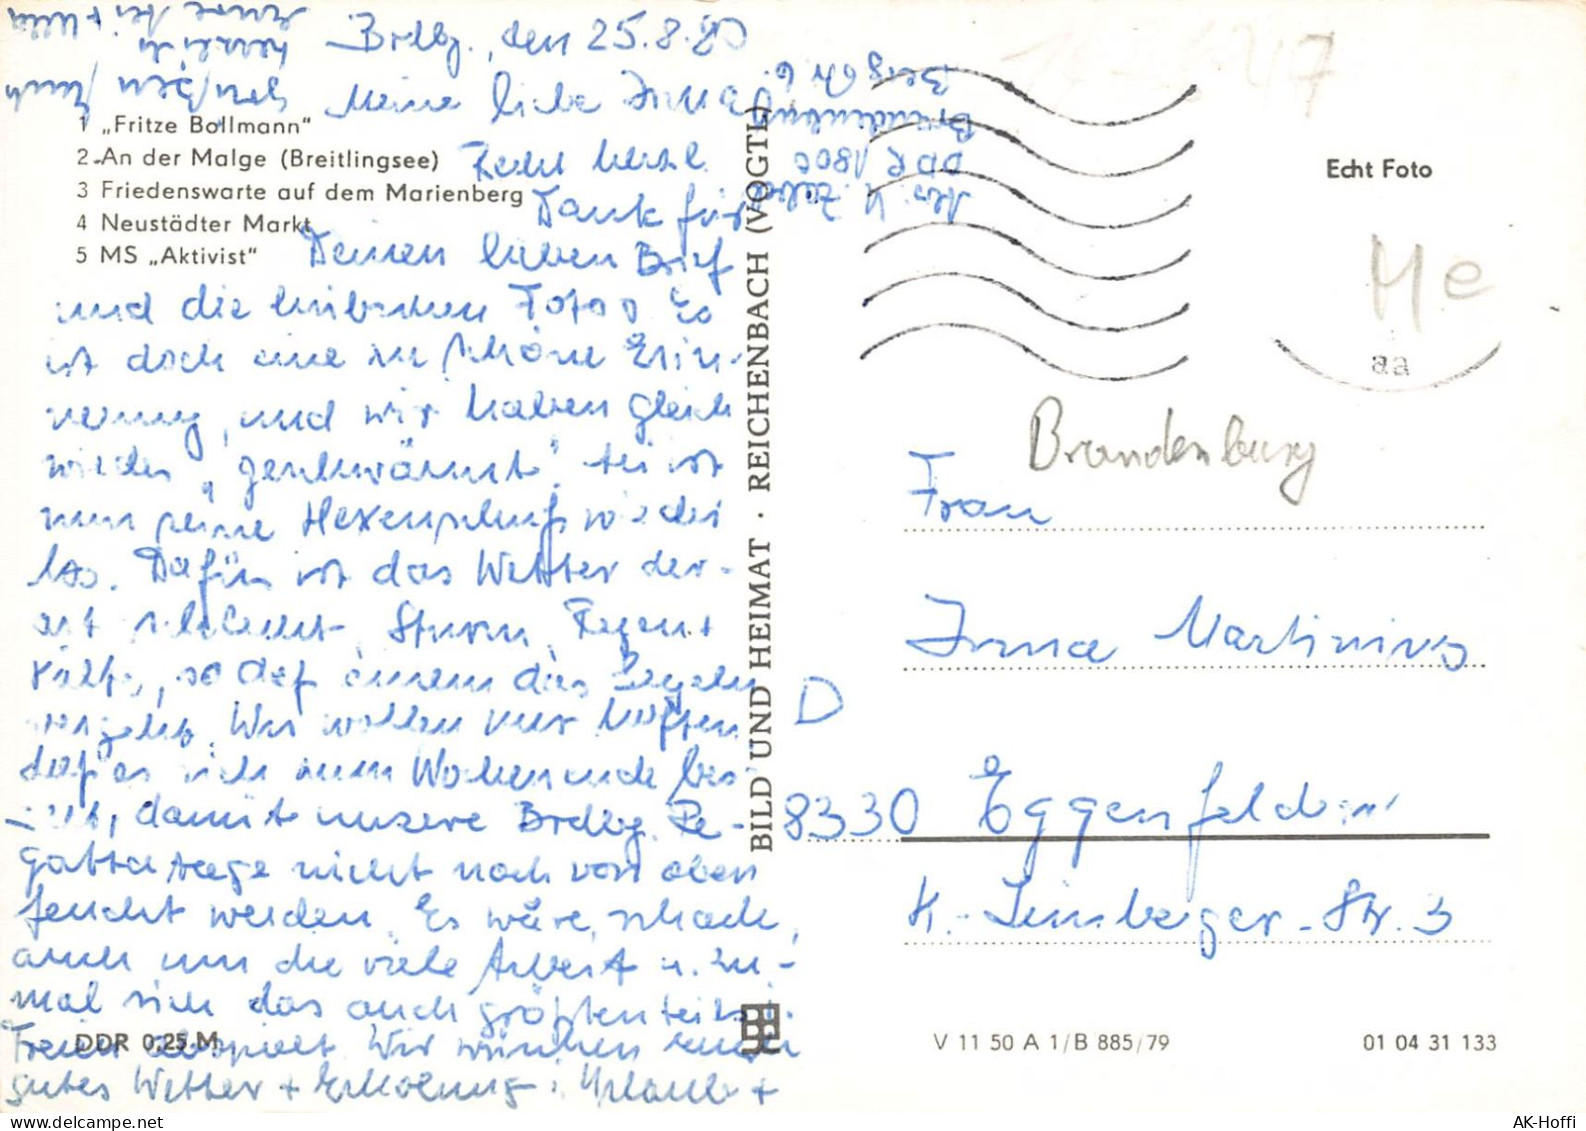 Brdbg., den 25.8.80
Meine liebe Irma
1 „Fritze Bollmann“
2 An der Malge (Breitlingsee)
3 Friedenswarte auf dem Marienberg
4 Neustädter Markt
5 MS „Aktivist“
Recht herzl.
Dank für
Deinen lieben Brief
und die Fotos Es
ist doch eine so schöne Erin-
nerung, und wir haben gleich
wieder „geschwärmt“. ist
nun seine Hexenschuß wieder
los. Dafür ist das Wetter der-
art Sturm, Regen +
Kälte, so daß einem das Segeln
vergeht. Wir wollen nur hoffen
daß es sich zum Wochenende bes-
sert, damit unsere Brdbg. Re-
gattatage nicht noch von oben
feucht werden. Es wäre schade,
auch um die viele Arbeit u. zu-
mal sich das auch größtenteils i.
Freien abspielt. Wir wünschen Euch
gutes Wetter + Erholung i. Urlaub +
grüßen Euch
herzlich
Eure
DDR 0,25 M
BILD UND HEIMAT · REICHENBACH (VOGTL)
DDR 1800
Brandenburg
Echt Foto
Me
aa
Brandenburg
Frau
Irma Martinius
D
8330 Eggenfelden
Str. 3
V 11 50 A 1/B 885/79
01 04 31 133
AK-Hoffi